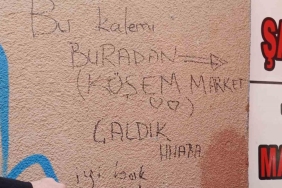 Bu kalemi
BURADAN
(KÖŞEM MARKET
ÇALDIK
HHAHA
iyi
ŞA
MA